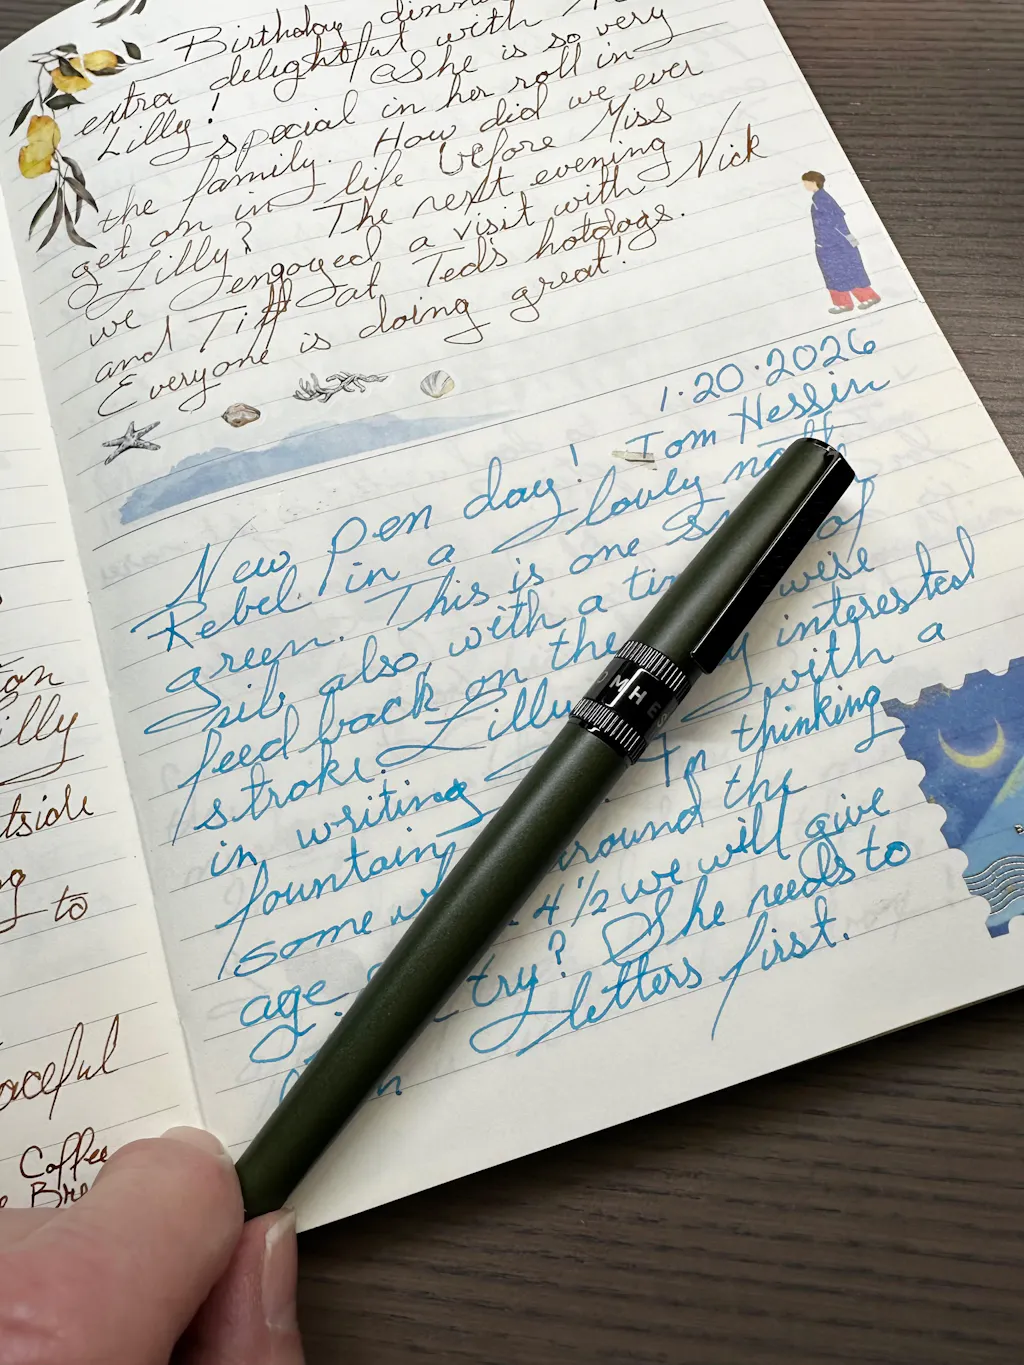 Birthday dinner
extra delightful with
Lilly! She is so very
special in her roll in
the family. How did we ever
get on in life before Miss
Lilly? The next evening
we engoyed a visit with Nick
and Tiff at Teds hotdogs.
Everyone is doing great!
1.20.2026
New Pen day! Tom Hessin
Rebel in a lovly
green. This is one of
nib, also, with a wise
feed back on the
stroke. Lilly interested
in writing with a
fountain I'm thinking
some around the
age 4 1/2 we will give
try? She needs to
letters first.
OMHES
illy
tside
to
aceful
Coffee